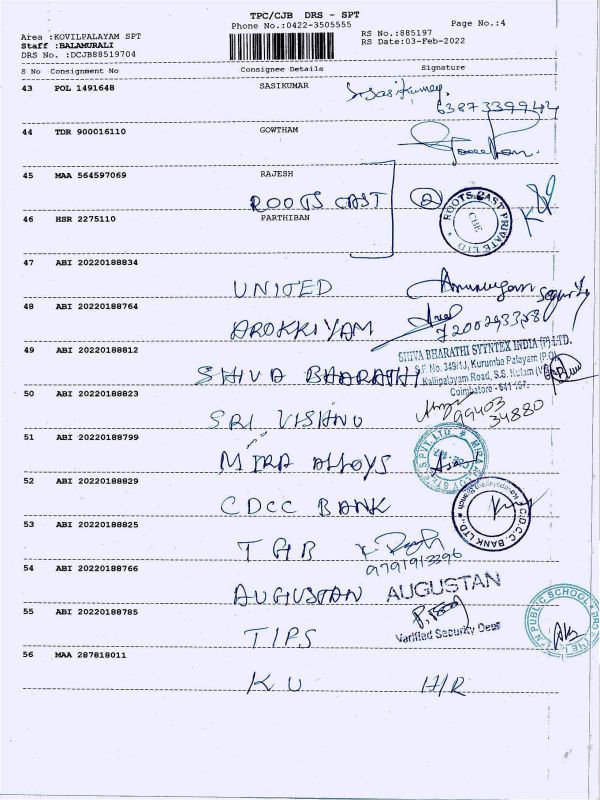 TPC/CJB DRS - SPT
Phone No.:0422-3505555
Page No.:4
Area :KOVILPALAYAM SPT
RS No.:885197
Staff :BALAMURALI
RS Date:03-Feb-2022
DRS No. :DCJB88519704
S No Consignment No Consignee Details Signature
43 POL 1491648 SASIKUMAR
44 TDR 900016110 GOWTHAM
45 MAA 564597069 RAJESH
ROOTS CAST 2
ROOTS CAST PRIVATE LTD
CBE
46 HSR 2275110 PARTHIBAN
47 ABI 20220188834
UNITED
Security
48 ABI 20220188764
AROKKIYAM
49 ABI 20220188812
SHIVA BHARATHI SYNTEX INDIA (P) LTD.
S.F. No. 349/1J, Kurumba Palayam (P.O)
Kallipalayam Road, S.S. Kulam
Coimbatore - 641 107.
SHIVA BHARATHI
50 ABI 20220188823
99403
34880
SRI VISHNU
51 ABI 20220188799
MIRA ALLOYS
52 ABI 20220188829
CDCC BANK
C.D.C.C. BANK LTD.
53 ABI 20220188825
TGB
9791913396
54 ABI 20220188766
AUGUSTAN AUGUSTAN
55 ABI 20220188785
Varified Security Dept
PUBLIC SCHOOL
TIPS
56 MAA 287818011
KU H/R